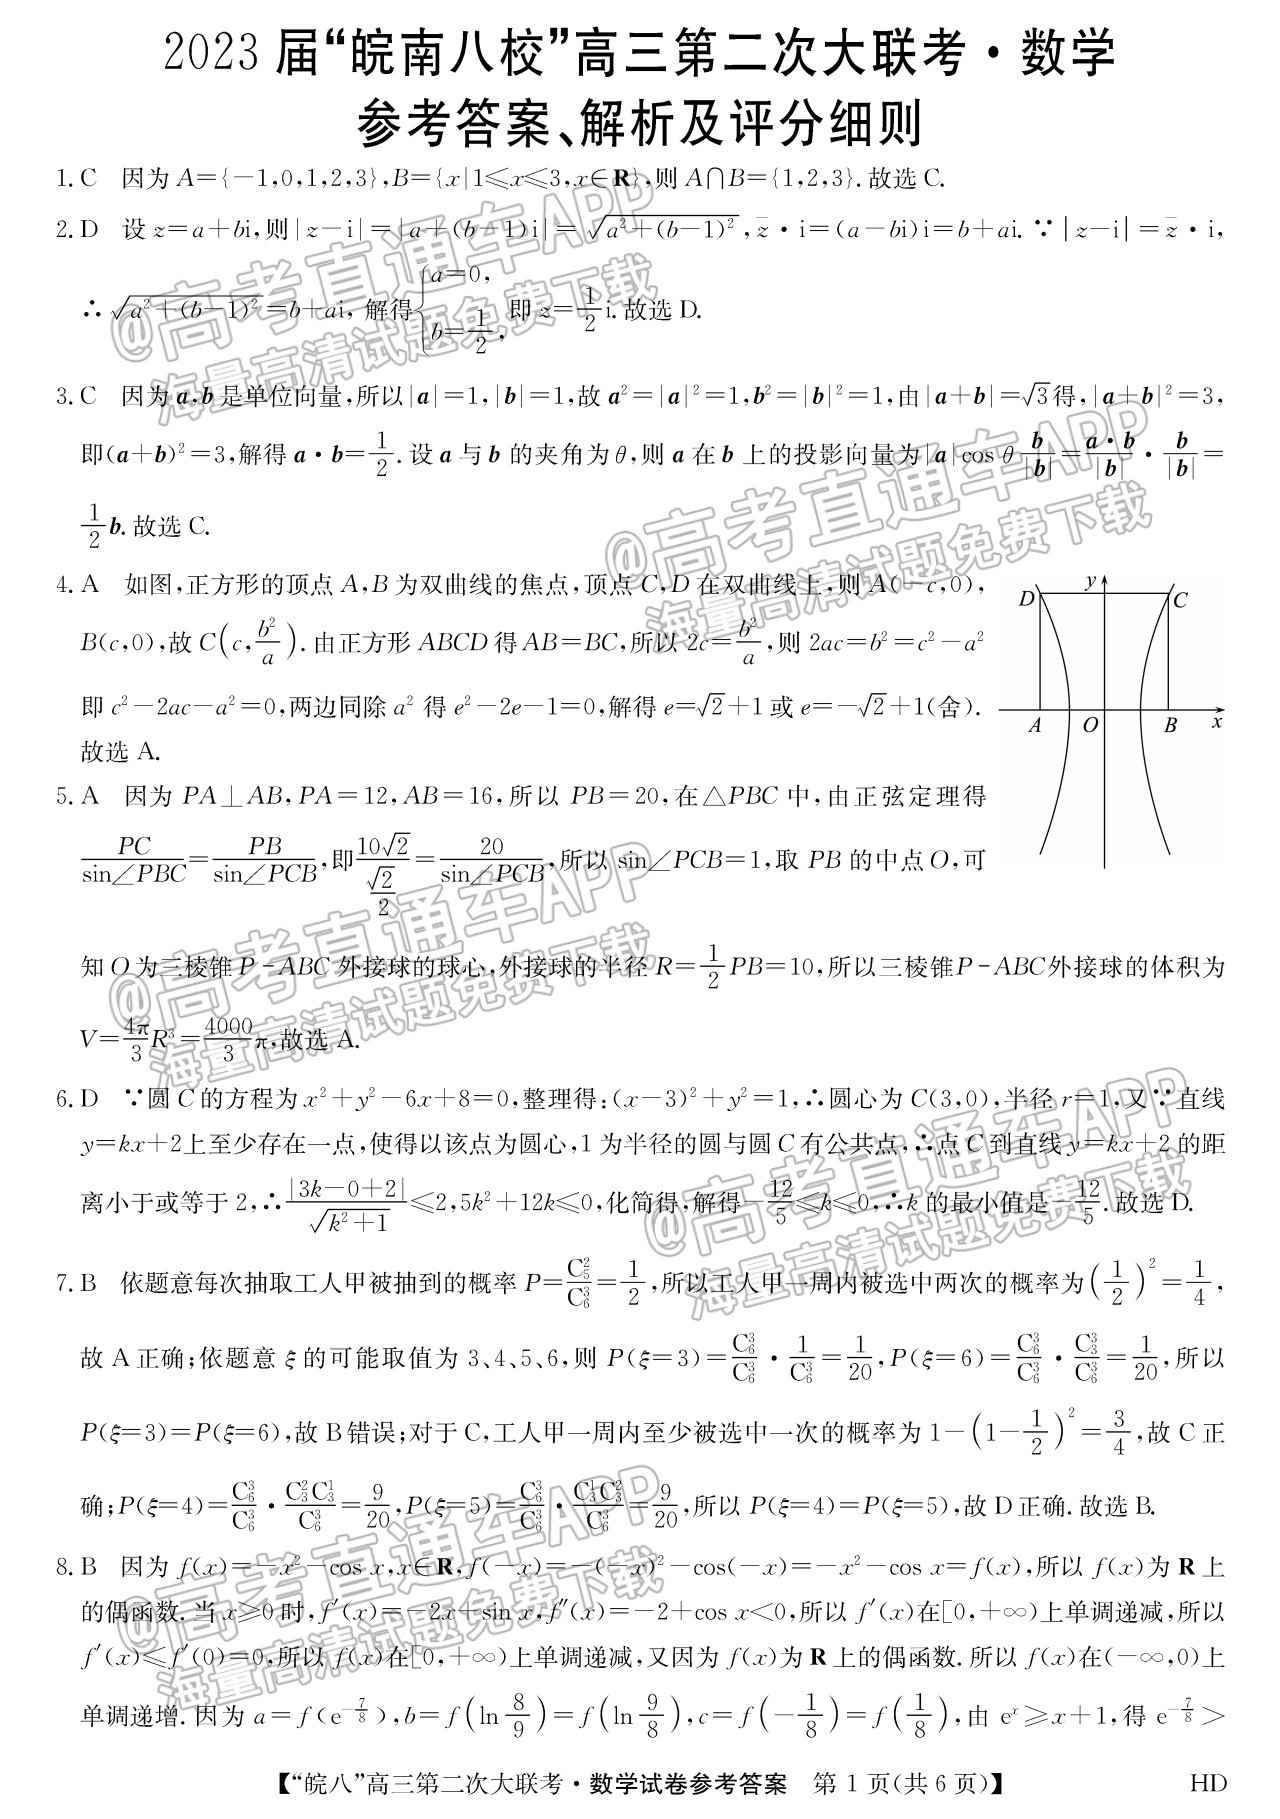 2023 届“皖南八校”高三第二次大联考·数学
参考答案、解析及评分细则
1. C 因为 A={-1,0,1,2,3},B={x|1≤x≤3,x∈R},则 A∩B={1,2,3}. 故选 C.
2. D 设 z=a+bi,则|z-i|=|a+(b-1)i|=√(a²+(b-1)²),z̄·i=(a-bi)i=b+ai. ∵|z-i|=z̄·i,
∴√(a²+(b-1)²)=b+ai, 解得{a=0, b=1/2, 即 z=1/2 i. 故选 D.
3. C 因为 a,b 是单位向量,所以|a|=1,|b|=1,故 a²=|a|²=1,b²=|b|²=1,由|a+b|=√3得,|a+b|²=3,
即(a+b)²=3,解得 a·b=1/2. 设 a 与 b 的夹角为 θ,则 a 在 b 上的投影向量为|a|cos θ b/|b|=a·b/|b|·b/|b|=
1/2 b. 故选 C.
4. A 如图,正方形的顶点 A,B 为双曲线的焦点,顶点 C,D 在双曲线上,则 A(-c,0),
B(c,0),故 C(c,b²/a). 由正方形 ABCD 得 AB=BC,所以 2c=b²/a,则 2ac=b²=c²-a²
即 c²-2ac-a²=0,两边同除 a² 得 e²-2e-1=0,解得 e=√2+1 或 e=-√2+1(舍).
故选 A.
y
D
C
A
O
B
x
5. A 因为 PA⊥AB,PA=12,AB=16,所以 PB=20,在△PBC 中,由正弦定理得
PC/sin∠PBC=PB/sin∠PCB,即10√2/(√2/2)=20/sin∠PCB,所以 sin∠PCB=1,取 PB 的中点 O,可
知 O 为三棱锥 P-ABC 外接球的球心,外接球的半径 R=1/2 PB=10,所以三棱锥P-ABC外接球的体积为
V=4π/3 R³=4000/3 π,故选 A.
6. D ∵圆 C 的方程为 x²+y²-6x+8=0,整理得:(x-3)²+y²=1,∴圆心为 C(3,0),半径 r=1,又∵直线
y=kx+2上至少存在一点,使得以该点为圆心,1 为半径的圆与圆 C 有公共点,∴点 C 到直线 y=kx+2 的距
离小于或等于 2,∴|3k-0+2|/√(k²+1)≤2,5k²+12k≤0,化简得,解得-12/5≤k≤0,∴k 的最小值是-12/5. 故选 D.
7. B 依题意每次抽取工人甲被抽到的概率 P=C₅²/C₆³=1/2,所以工人甲一周内被选中两次的概率为(1/2)²=1/4,
故 A 正确;依题意 ξ 的可能取值为 3、4、5、6,则 P(ξ=3)=C₆³/C₆³·1/C₆³=1/20,P(ξ=6)=C₆³/C₆³·C₃³/C₆³=1/20,所以
P(ξ=3)=P(ξ=6),故 B 错误;对于 C,工人甲一周内至少被选中一次的概率为 1-(1-1/2)²=3/4,故 C 正
确;P(ξ=4)=C₆³/C₆³·C₃²C₃¹/C₆³=9/20,P(ξ=5)=C₆³/C₆³·C₃¹C₃²/C₆³=9/20,所以 P(ξ=4)=P(ξ=5),故 D 正确. 故选 B.
8. B 因为 f(x)=-x²-cos x,x∈R,f(-x)=-(-x)²-cos(-x)=-x²-cos x=f(x),所以 f(x)为 R 上
的偶函数. 当 x≥0 时,f′(x)=-2x+sin x,f″(x)=-2+cos x<0,所以 f′(x)在[0,+∞)上单调递减,所以
f′(x)≤f′(0)=0,所以 f(x)在[0,+∞)上单调递减,又因为 f(x)为 R 上的偶函数. 所以 f(x)在(-∞,0)上
单调递增. 因为 a=f(e^(-7/8)),b=f(ln 8/9)=f(ln 9/8),c=f(-1/8)=f(1/8),由 eˣ≥x+1,得 e^(-7/8)>
【“皖八”高三第二次大联考·数学试卷参考答案 第 1 页(共 6 页)】 HD
@高考直通车APP
海量高清试题免费下载
@高考直通车APP
海量高清试题免费下载
@高考直通车APP
海量高清试题免费下载
@高考直通车APP
海量高清试题免费下载
@高考直通车APP
海量高清试题免费下载